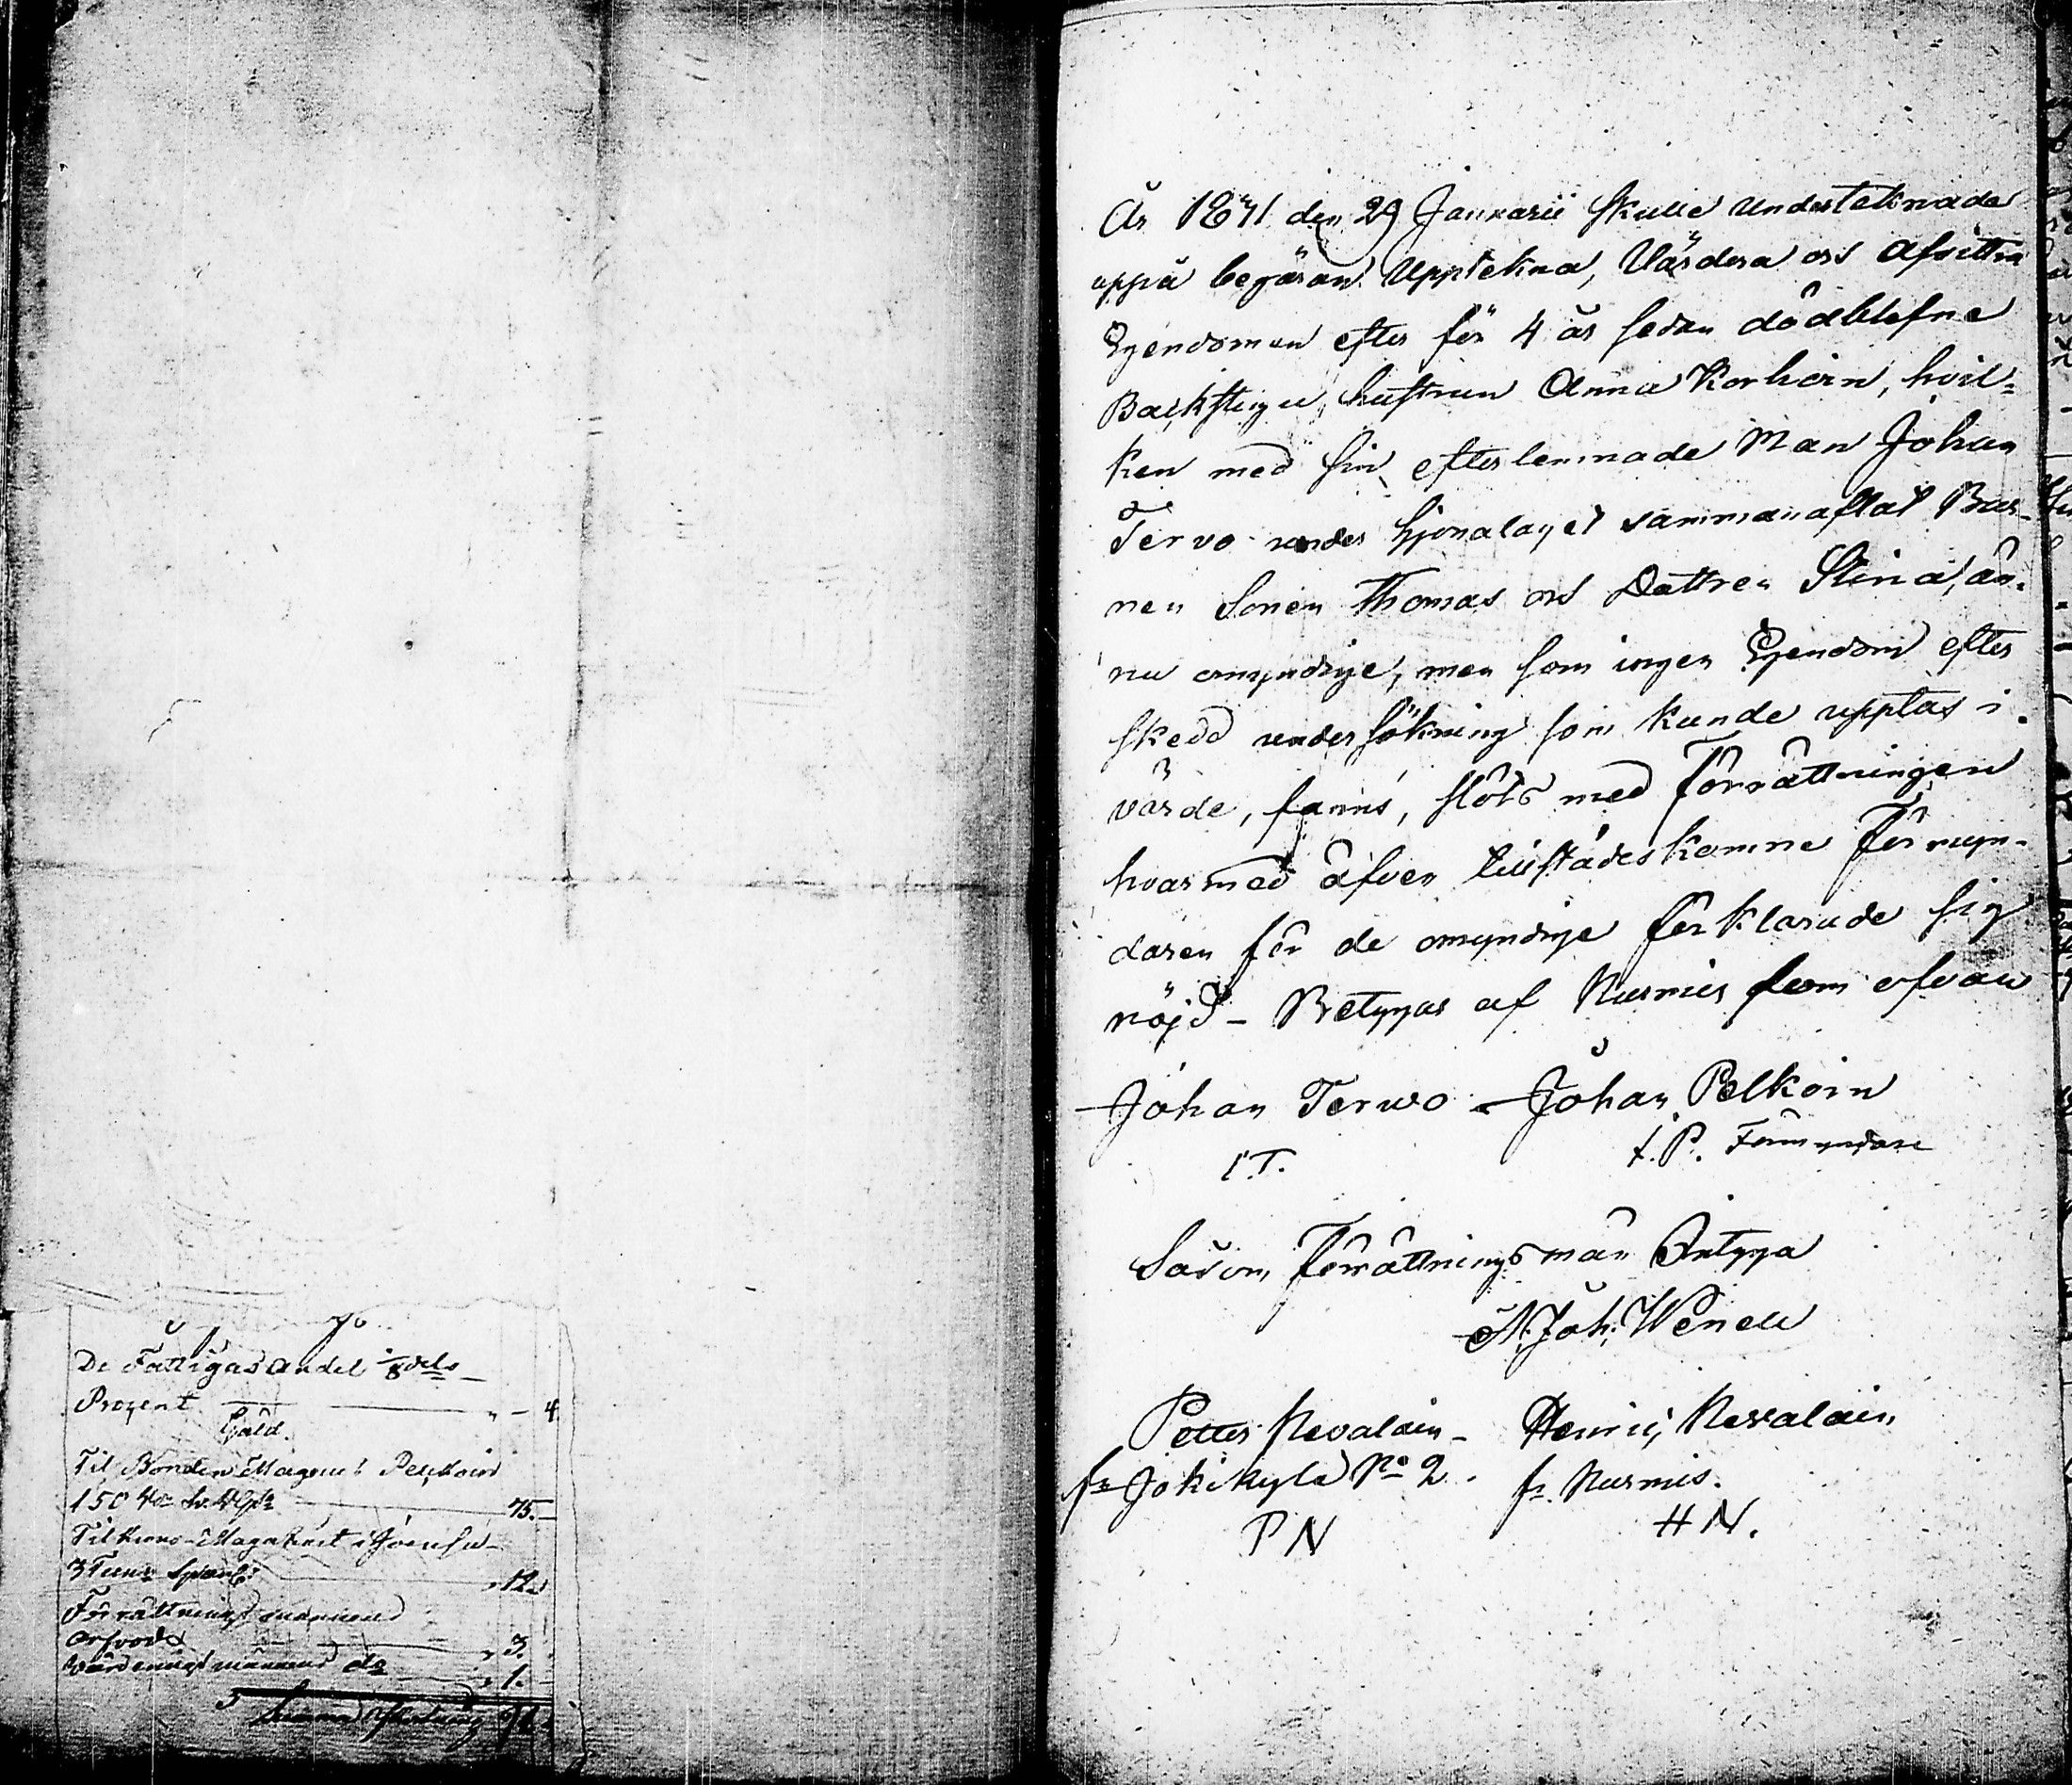 De Fattigas andel 1/8 dels
Prozent " - 4
Gäld.
Til Bonden Magnus Pelkoin
150 75.-
Til Krono-Magaseinet i Joensu-
3 Tunr Spanl: " 12.
Förrättningsmannens
Arfvode " 3.
Värderingsmännens do " 1.
Summa
År 1871 den 29 Januarii skulle undertecknade
uppå begäran Upptekna, Värdera och afvittra
Egendomen efter för 4 år sedan dödblefne
Backstugu hustrun Anna Korhoin, hvil=
ken med sin efterlemnade Man Johan
Tervo under hjonalaget sammanaflat Bar-
nen Sonen Thomas och Dottren Stina, än-
nu omyndige, men som ingen Egendom efter
skedd undersökning som kunde upptas i
värde, fanns, slöts med Förrättningen
hvarmed äfven tillstädeskomne Förmyn-
daren för de omyndige förklarade sig
nöjd - Betygas af Nurmis som ofvan
Johan Terwo - Johan Pelkoin
I.T. I.P. Förmyndare
Såsom Förrättningsman Intyga
A. Joh. Wenell
Petter Nevalain - Henric Nevalain
fr Jokikylä No 2. fr. Nurmis.
P N H N.